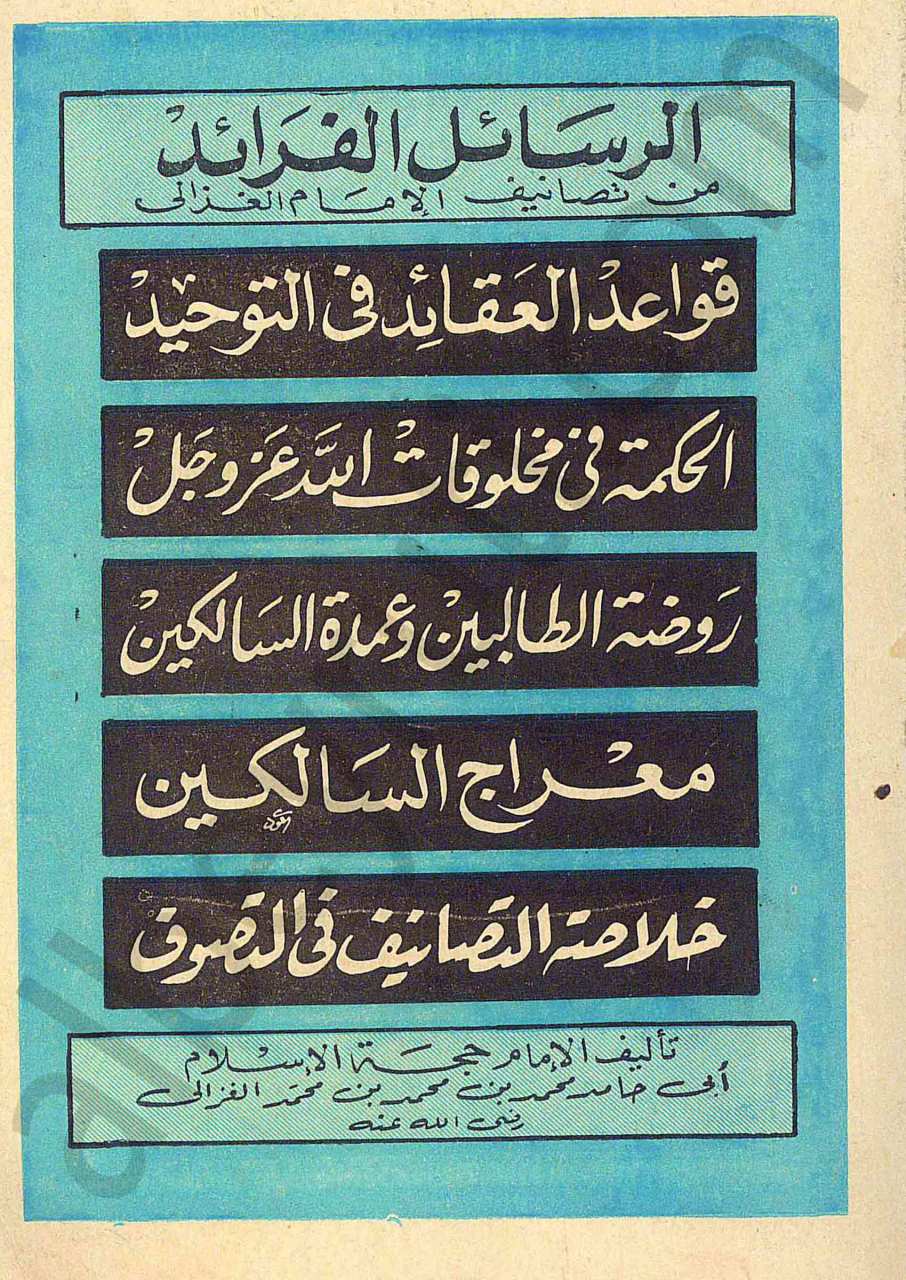 الرسائل الفرائد
من تصانيف الإمام الغزالى
قواعد العقائد فى التوحيد
الحكمة فى مخلوقات الله عز وجل
روضة الطالبين وعمدة السالكين
معراج السالكين
خلاصة التصانيف فى التصوف
تأليف الإمام حجة الإسلام
أبى حامد محمد بن محمد بن محمد الغزالى
رضى الله عنه